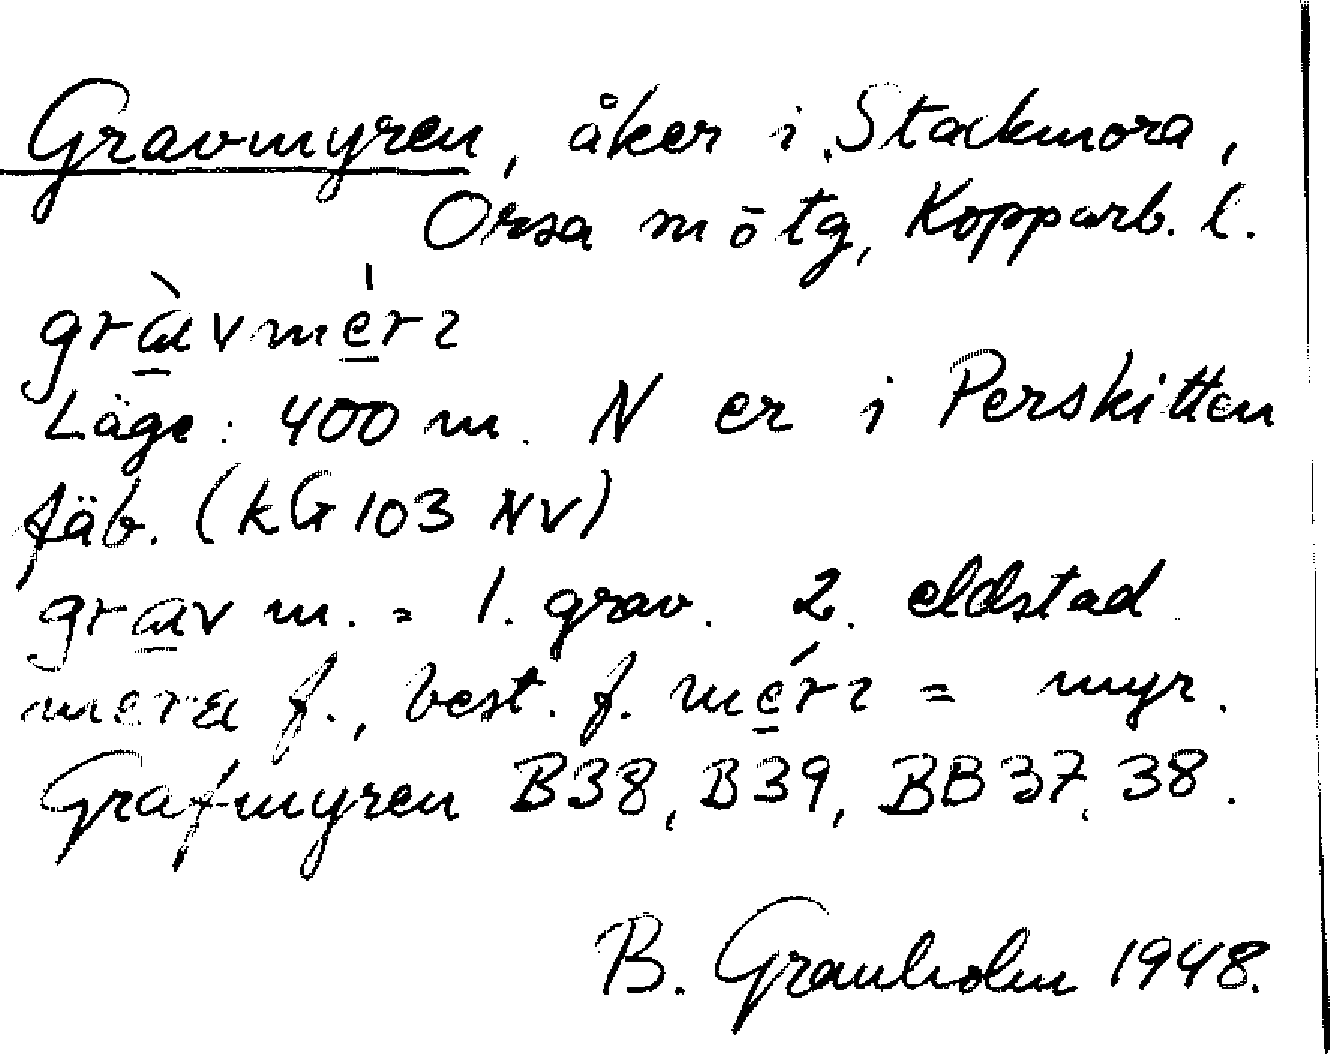 Gravmyren, åker i Stackmora,
Orsa m ö tg, Kopparb. l.
gràvmérı
Läge: 400 m. N er i Perskitten
fäb. (kG 103 NV)
grav m. = 1. grav. 2. eldstad
mera f., best. f. mérı = myr.
Grafmyren B38, B39, BB37, 38.
B. Granholm 1948.